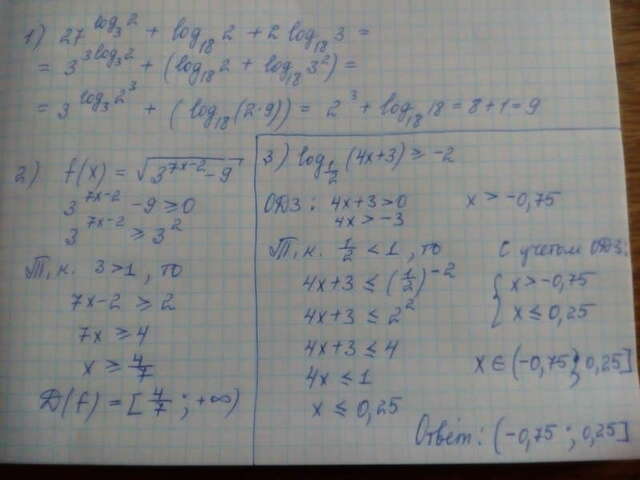 1) 27^{log_3 2} + log_{18} 2 + 2 log_{18} 3 =
= 3^{3log_3 2} + (log_{18} 2 + log_{18} 3^2) =
= 3^{log_3 2^3} + (log_{18} (2·9)) = 2^3 + log_{18} 18 = 8 + 1 = 9
2) f(x) = √(3^{7x-2} - 9)
3^{7x-2} - 9 ≥ 0
3^{7x-2} ≥ 3^2
Т,к. 3>1, то
7x-2 ≥ 2
7x ≥ 4
x ≥ 4/7
D(f) = [4/7 ; +∞)
3) log_{1/2} (4x+3) ≥ -2
ОДЗ: 4x+3>0
4x > -3
x > -0,75
Т,к. 1/2 < 1, то
4x+3 ≤ (1/2)^{-2}
4x+3 ≤ 2^2
4x+3 ≤ 4
4x ≤ 1
x ≤ 0,25
С учетом ОДЗ:
{ x > -0,75
x ≤ 0,25
x ∈ (-0,75; 0,25]
Ответ: (-0,75 ; 0,25]